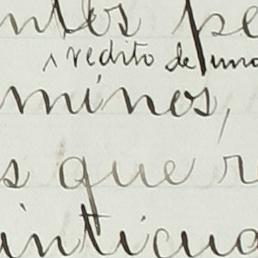 ntes pe
redito de una
minos,
s que r
intiqua